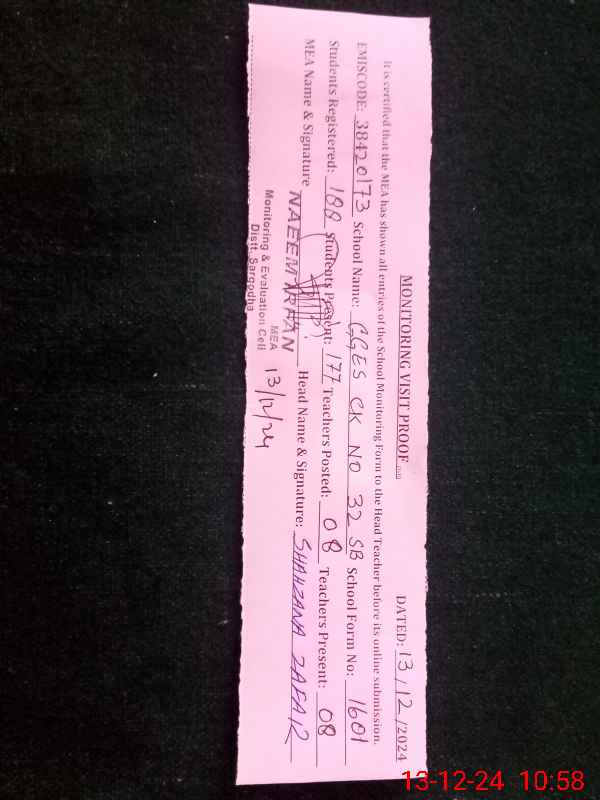 MONITORING VISIT PROOF DATED: 13/12/2024
It is certified that the MEA has shown all entries of the School Monitoring Form to the Head Teacher before its online submission.
EMISCODE: 38420173 School Name: GGES CK NO 32 SB School Form No: 1601
Students Registered: 188 Students Present: 177 Teachers Posted: 08 Teachers Present: 08
MEA Name & Signature NAEEM IRFAN Head Name & Signature: SHAHZANA ZAFAR
MEA 13/12/24
Monitoring & Evaluation Cell
Distt. Sargodha
13-12-24 10:58